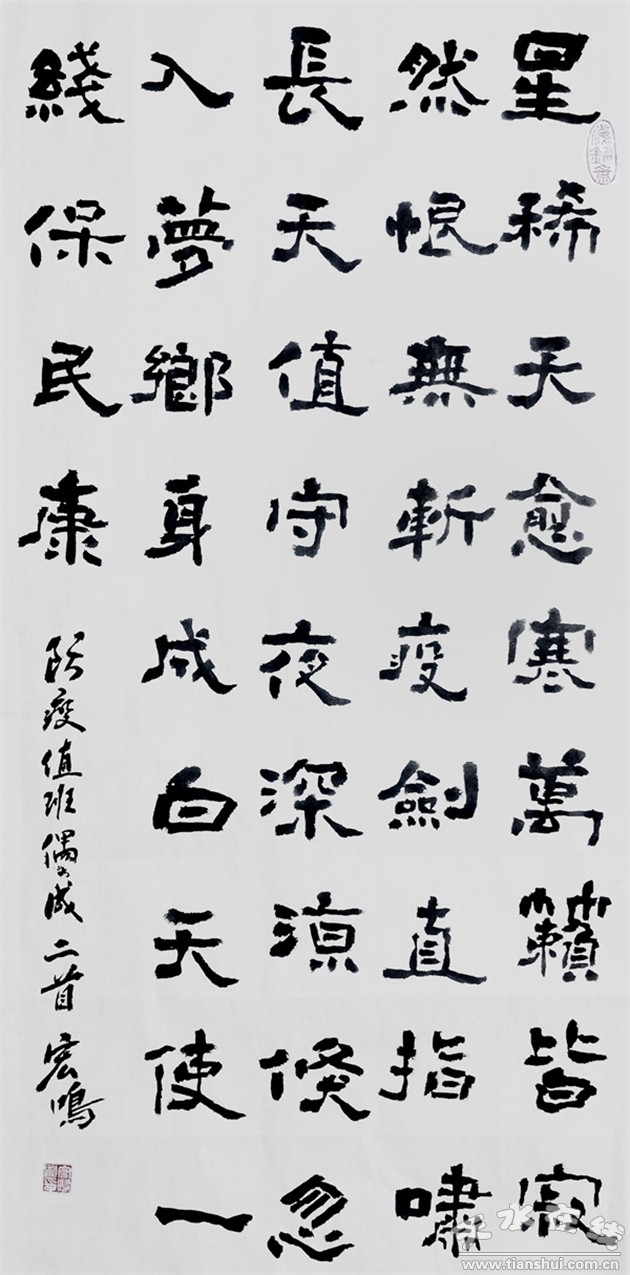 星稀天愈寒萬籟皆寂
然恨無斬疫劍直指嘯
長天值守夜深涼倏忽
入夢鄉身成白天使一
綫保民康
防疫值班偶成二首 宏鳴
天水在线
www.tianshui.com.cn